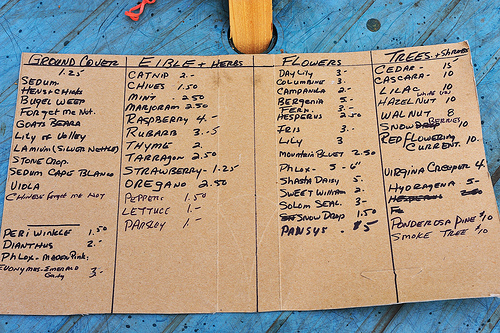 GROUND COVER
1.25
SEDUM
HENS+CHICKS
BUGEL WEED
FORGET ME NOT.
GOATS BEARD
Lily of Valley
LAMIUM (SILVER NETTLE)
STONE CROP.
SEDUM CAPO BLANCO
VIOLA
CHINESE FORGET ME NOT
PERIWINKLE 1.50
DIANTHUS 2.-
PHLOX- MAIDEN PINK.
EUONYMUS- EMERALD
3-
EIBLE + HERBS
CATNIP 2.-
CHIVES 1.50
MINT 2.50
MARJORAM 2.50
RASPBERRY 4.-
RUBARB 3.-5
THYME 2
TARRAGON 2.50
STRAWBERRY- 1.25
OREGANO 2.50
PEPPERS 1.50
LETTUCE 1.-
PARSLEY 1.-
FLOWERS
DAY Lily 3-
COLUMBINE 3-
CAMPANULA 2-
BERGENIA 5-
FERN. 3-
HESPERUS 2.50
IRIS 3-
LILY 3
MOUNTAIN BLUET 2.50
PHLOX- 5-6"
SHASTA DAISY 5-
SWEET WILLIAM 2.
SOLOM SEAL. 3-
SNOW DROP 1.50
PANSYS - $5
TREES + SHRUBS
CEDAR- 15
CASCARA- 10
LILAC 10
HAZELNUT 10
WALNUT 8
SNOW BERRIES 10
RED FLOWERING
CURRENT. 10-
VIRGINA CREEPER 4
HYDRAGENA 5-
PONDEROSA PINE $10
SMOKE TREE $10